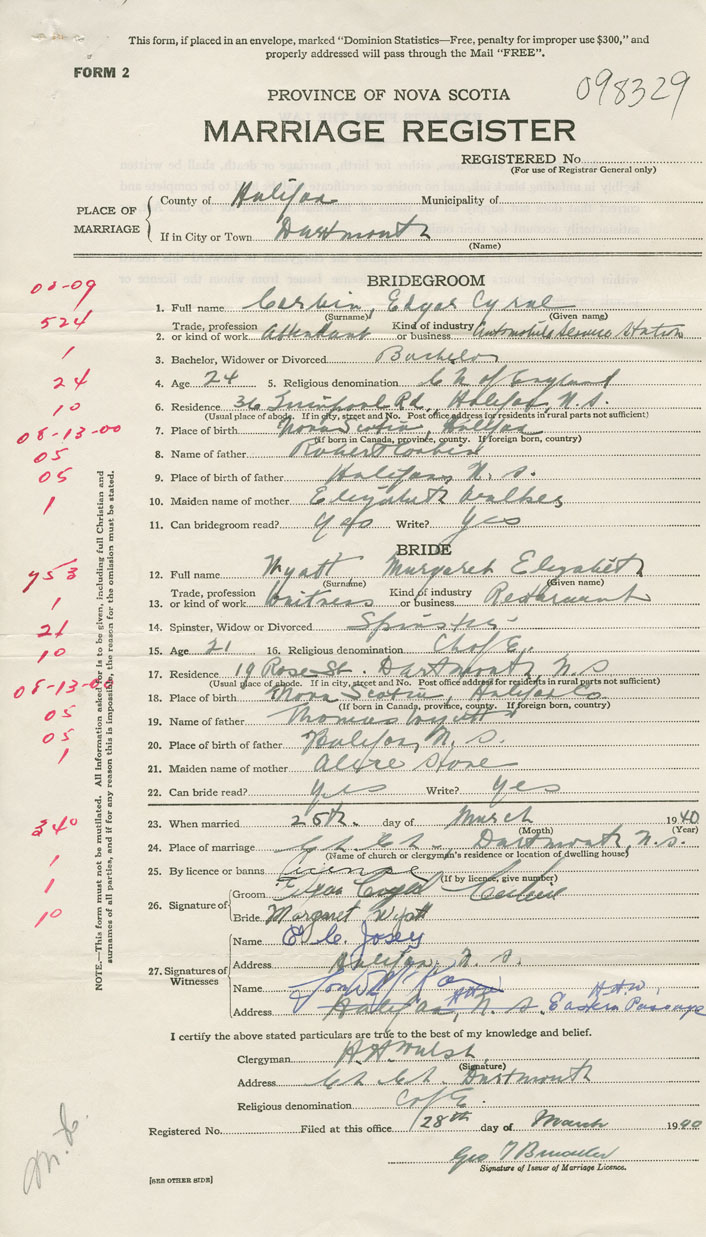 This form, if placed in an envelope, marked "Dominion Statistics—Free, penalty for improper use $300," and
properly addressed will pass through the Mail "FREE".
FORM 2
098329
PROVINCE OF NOVA SCOTIA
MARRIAGE REGISTER
REGISTERED No.
(For use of Registrar General only)
PLACE OF MARRIAGE
County of Halifax Municipality of
If in City or Town Dartmouth
(Name)
BRIDEGROOM
03-09
1. Full name Corbin, Edgar Cyrne
(Surname) (Given name)
524
2. Trade, profession or kind of work Attendant Kind of industry or business Automobile Service Station
1
3. Bachelor, Widower or Divorced Bachelor
24
4. Age 24 5. Religious denomination Ch of England
10
6. Residence 36 Liverpool Rd, Halifax, N.S.
(Usual place of abode. If in city, street and No. Post office address for residents in rural parts not sufficient)
08-13-00
7. Place of birth Nova Scotia, Halifax
(If born in Canada, province, county. If foreign born, country)
05
8. Name of father Robert Corbin
05
9. Place of birth of father Halifax, N.S.
1
10. Maiden name of mother Elizabeth Walker
11. Can bridegroom read? Yes Write? Yes
BRIDE
453
12. Full name Wyatt Margaret Elizabeth
(Surname) (Given name)
1
13. Trade, profession or kind of work Waitress Kind of industry or business Restaurant
21
14. Spinster, Widow or Divorced Spinster
10
15. Age 21 16. Religious denomination Ch of E.
17. Residence 19 Rose St. Dartmouth, N.S
(Usual place of abode. If in city, street and No. Post office address for residents in rural parts not sufficient)
08-13-00
18. Place of birth Nova Scotia, Halifax Co.
(If born in Canada, province, county. If foreign born, country)
05
19. Name of father Thomas Wyatt
05
20. Place of birth of father Halifax, N.S.
1
21. Maiden name of mother Stone
22. Can bride read? Yes Write? Yes
340
23. When married 25th day of March 1940
(Month) (Year)
1
24. Place of marriage Ch. Ch., Dartmouth, N.S.
(Name of church or clergyman's residence or location of dwelling house)
1
25. By licence or banns License
(If by licence, give number)
10
26. Signature of
Groom Edgar Corbin
Bride Margaret Wyatt
27. Signatures of Witnesses
Name E. C. Josey
Address Halifax, N.S.
Name
Address Halifax, N.S. Eastern Passage
H.H.W. H.H.W.
I certify the above stated particulars are true to the best of my knowledge and belief.
Clergyman H.H. Walsh
(Signature)
Address Ch. Ch. Dartmouth
Religious denomination C of E.
Registered No. Filed at this office 28th day of March 1940
Geo T
Signature of Issuer of Marriage Licence.
[SEE OTHER SIDE]
NOTE.—This form must not be mutilated. All information asked for is to be given, including full Christian and
surnames of all parties, and if for any reason this is impossible, the reason for the omission must be stated.